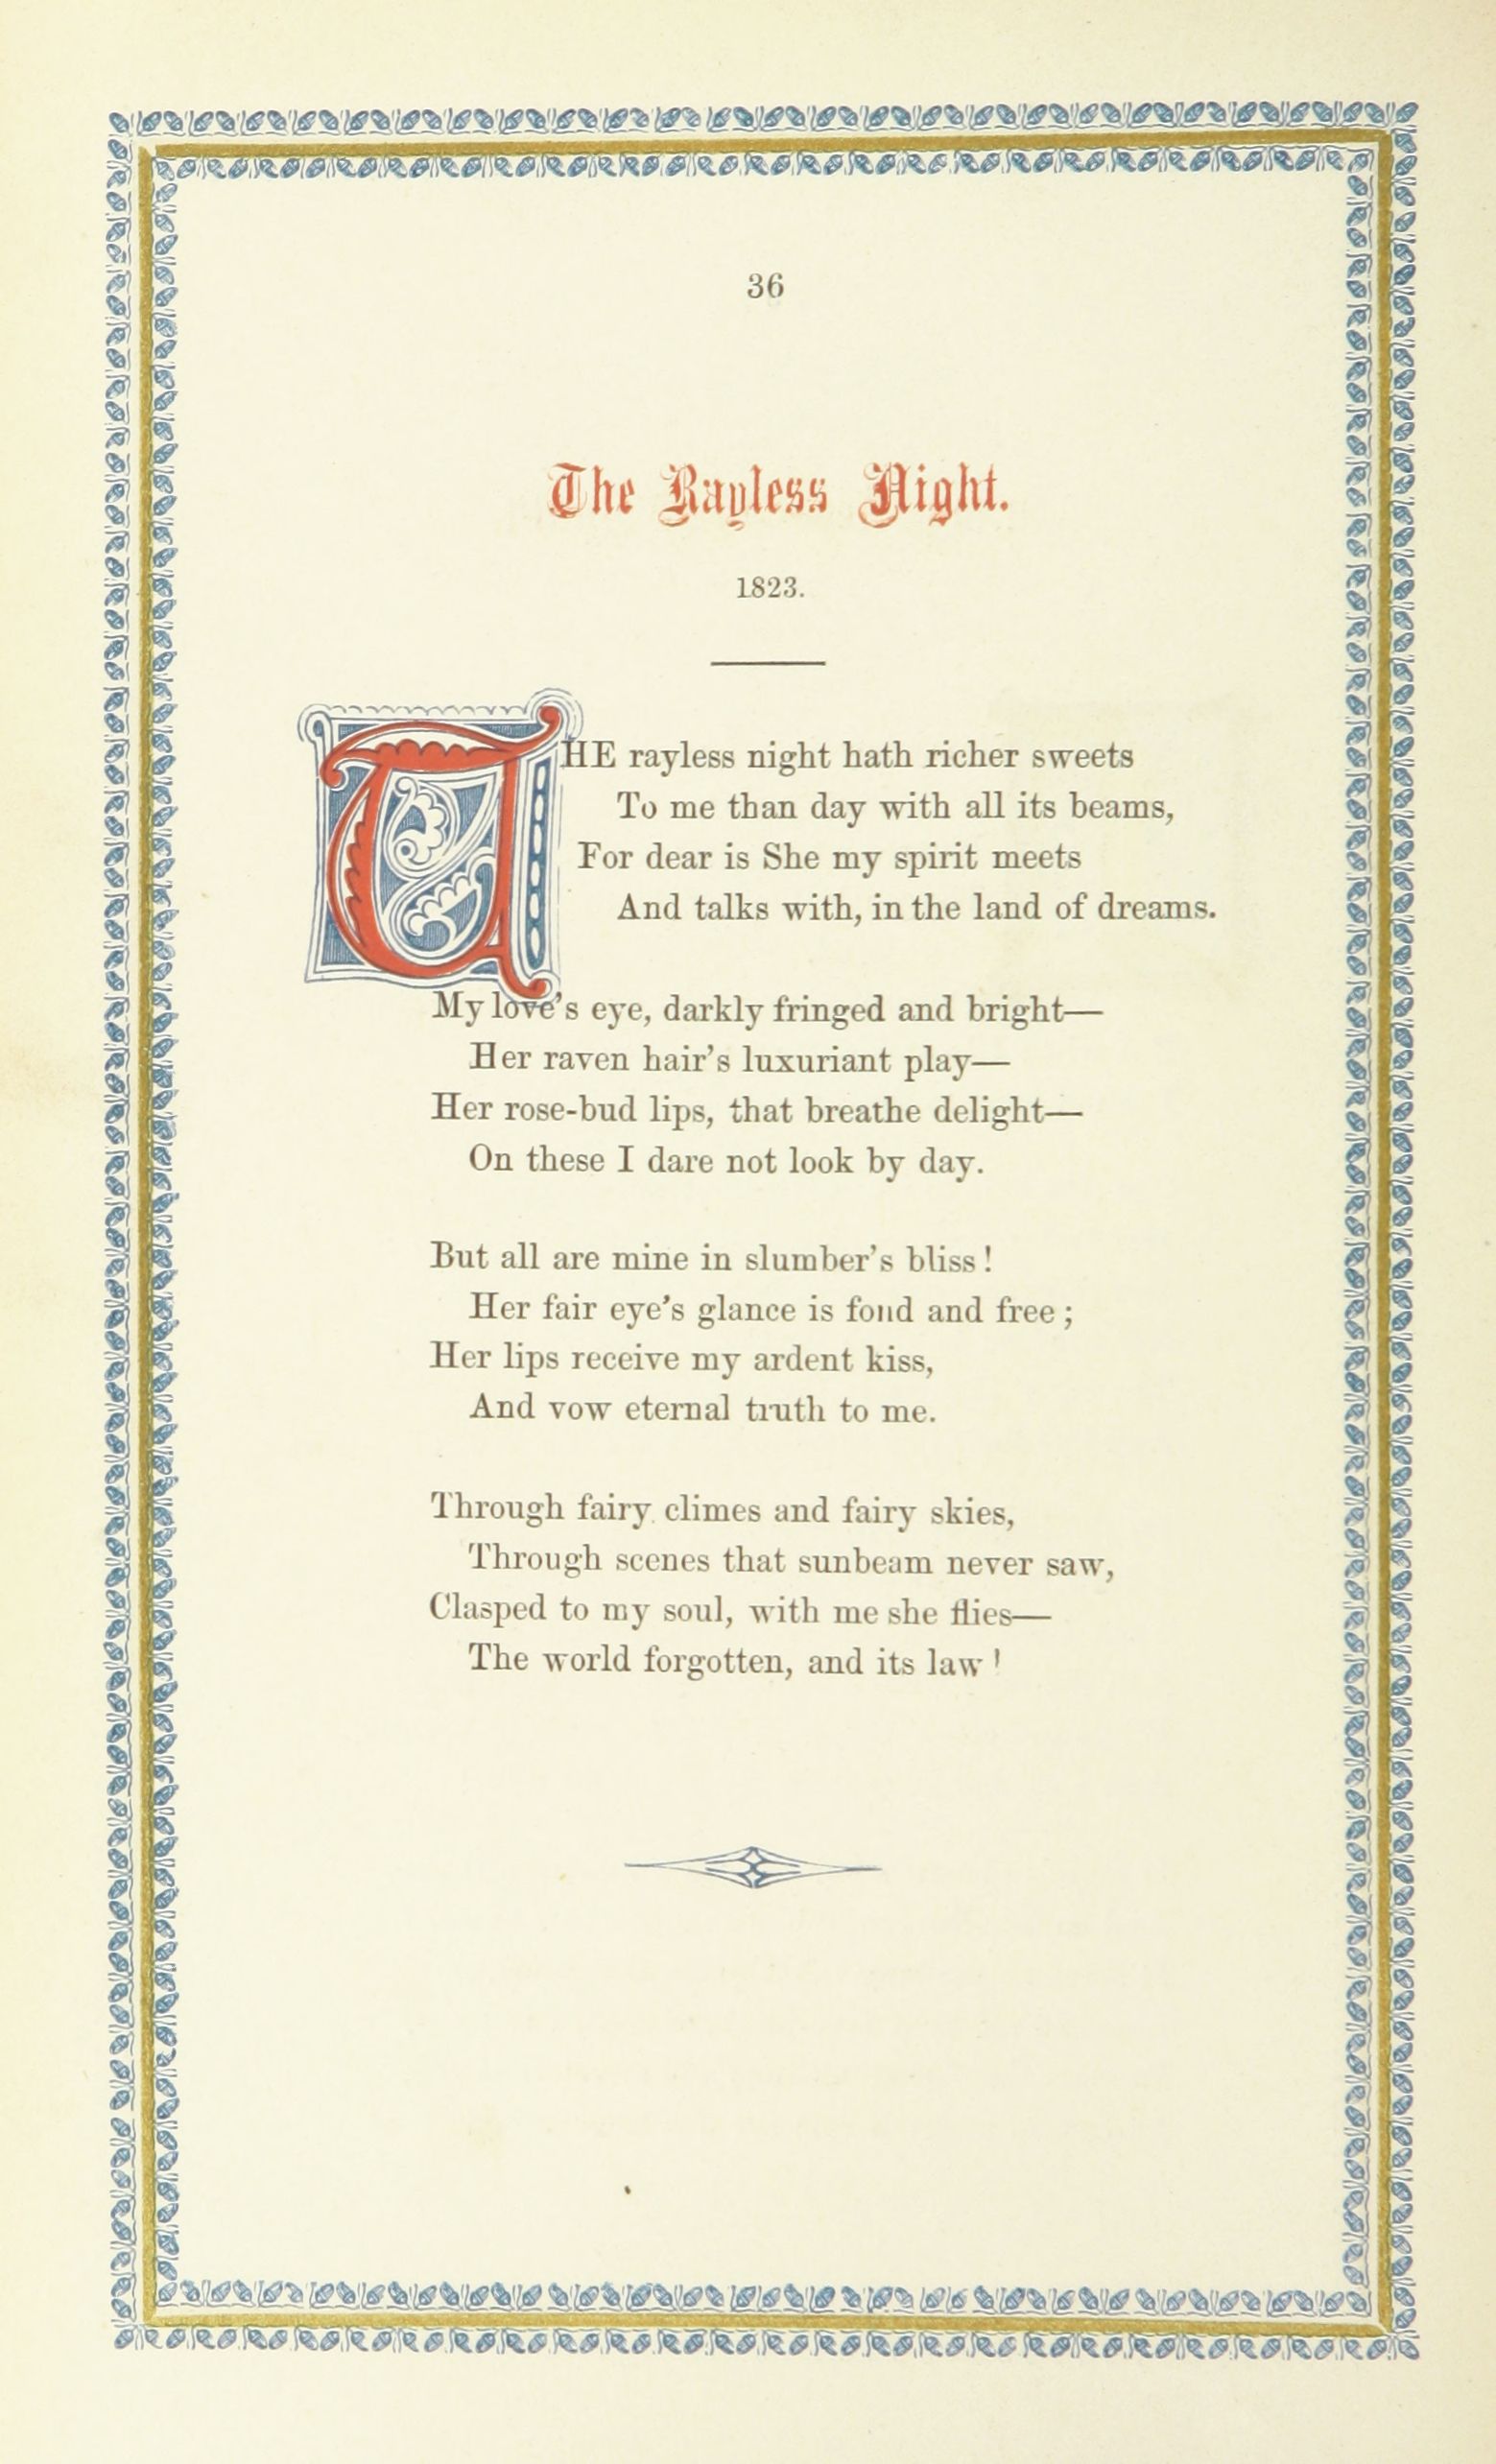 36
The Rayless Night.
1823.
THE rayless night hath richer sweets
To me than day with all its beams,
For dear is She my spirit meets
And talks with, in the land of dreams.
My love's eye, darkly fringed and bright—
Her raven hair's luxuriant play—
Her rose-bud lips, that breathe delight—
On these I dare not look by day.
But all are mine in slumber's bliss!
Her fair eye's glance is fond and free;
Her lips receive my ardent kiss,
And vow eternal truth to me.
Through fairy climes and fairy skies,
Through scenes that sunbeam never saw,
Clasped to my soul, with me she flies—
The world forgotten, and its law!